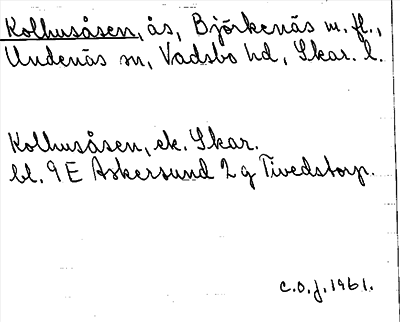 Kolhusåsen, ås, Björkenäs m. fl.,
Undenäs sn, Vadsbo hd, Skar. l.
Kolhusåsen, ek. Skar.
bl. 9E Askersund 2 g Tivedstorp.
C.O.J. 1961.